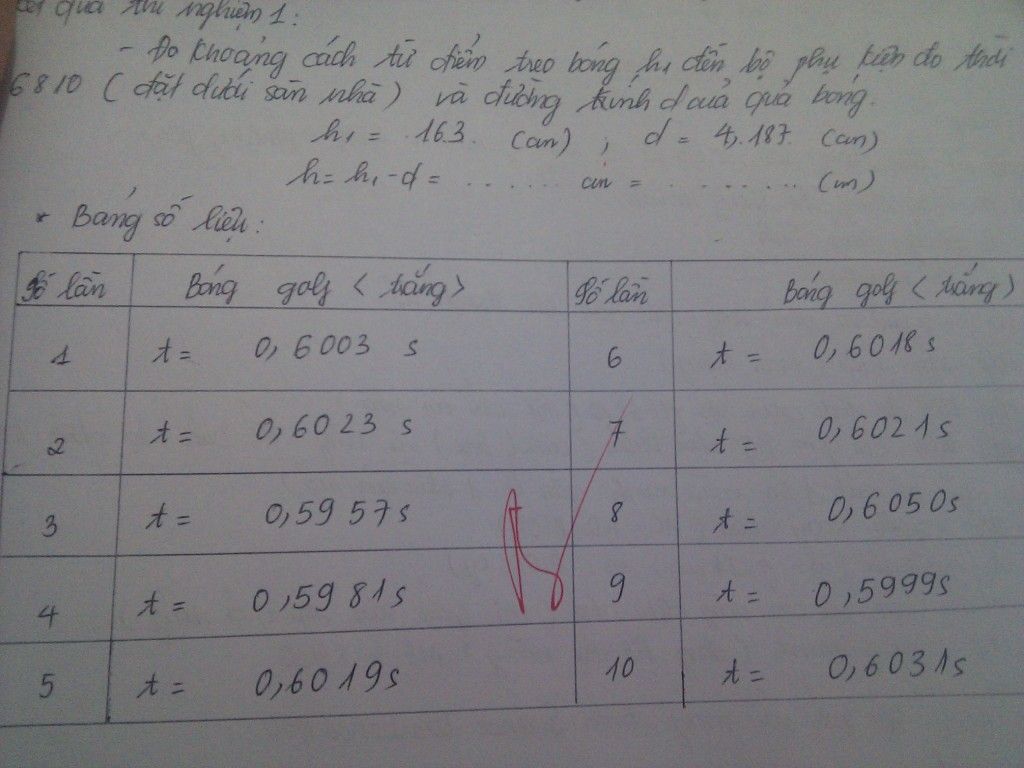 quả thí nghiệm 1:
- Đo khoảng cách từ điểm treo bóng h₁ đến bộ phụ kiện đo thời
6810 (đặt dưới sàn nhà) và đường kính d của quả bóng.
h₁ = .163. (cm) ; d = 4,.187. (cm)
h = h₁ - d = ...... cm = ........ (m)
* Bảng số liệu:
Số lần Bóng golf < trắng > Số lần Bóng golf < trắng >
1 t = 0,6003 s 6 t = 0,6018 s
2 t = 0,6023 s 7 t = 0,6021 s
3 t = 0,5957 s 8 t = 0,6050 s
4 t = 0,5981 s 9 t = 0,5999 s
5 t = 0,6019 s 10 t = 0,6031 s